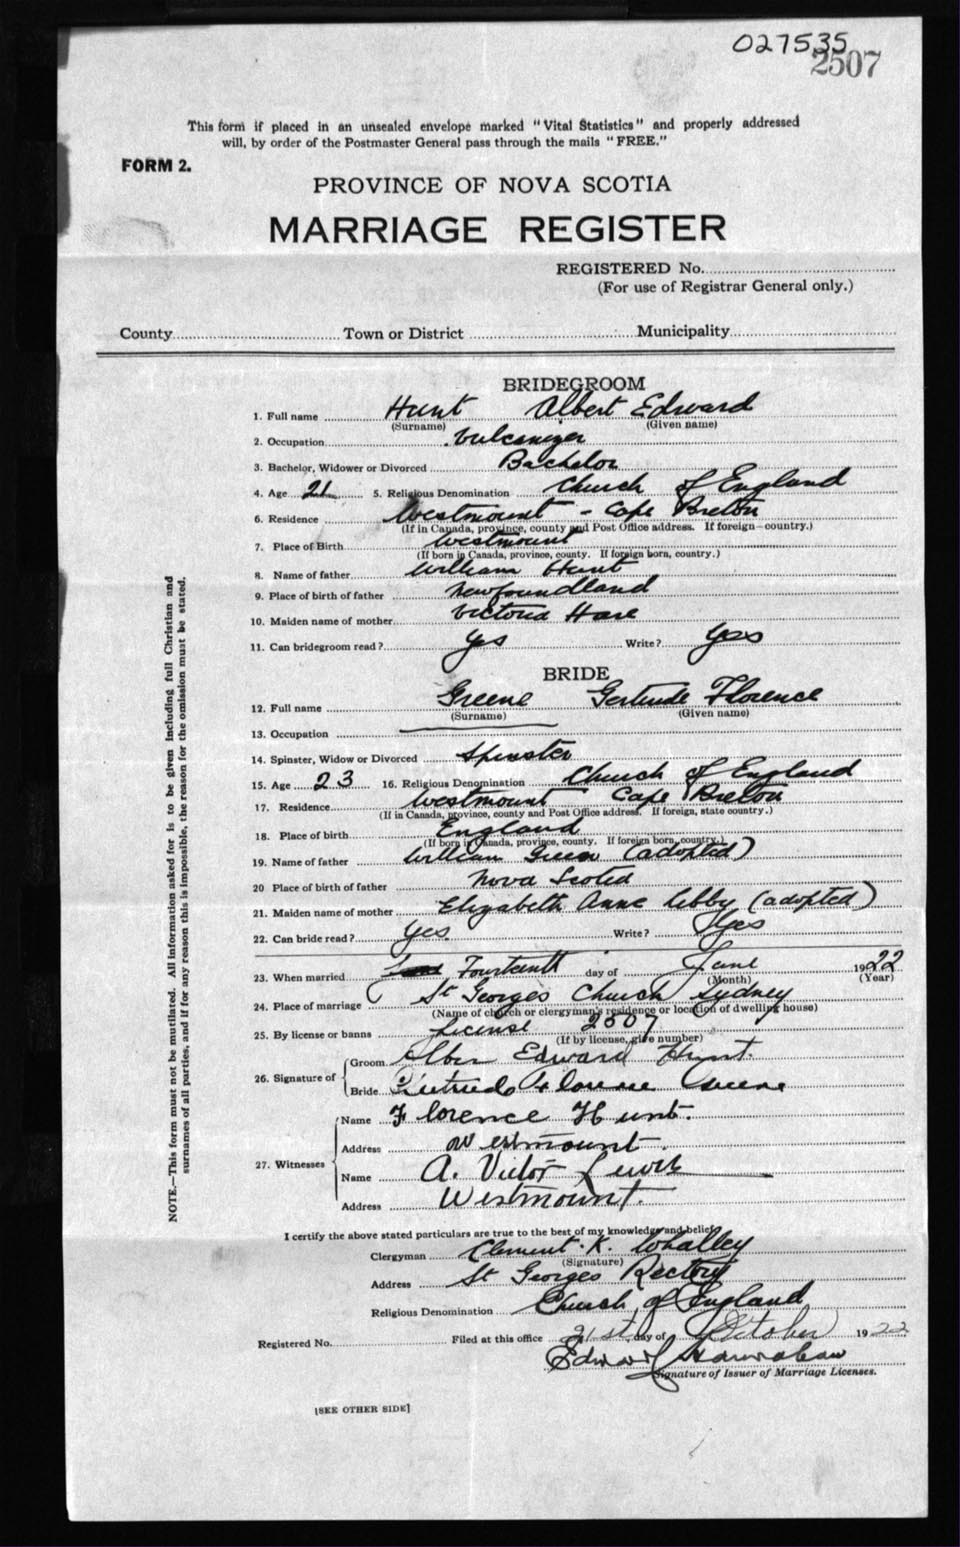 027535
2507
This form if placed in an unsealed envelope marked "Vital Statistics" and properly addressed
will, by order of the Postmaster General pass through the mails "FREE."
FORM 2.
PROVINCE OF NOVA SCOTIA
MARRIAGE REGISTER
REGISTERED No.
(For use of Registrar General only.)
County Town or District Municipality
BRIDEGROOM
1. Full name Hunt Albert Edward
(Surname) (Given name)
2. Occupation Vulcanizer
3. Bachelor, Widower or Divorced Bachelor
4. Age 21 5. Religious Denomination Church of England
6. Residence Westmount - Cape Breton
(If in Canada, province, county and Post Office address. If foreign—country.)
7. Place of Birth Westmount
(If born in Canada, province, county. If foreign born, country.)
8. Name of father William Hunt
9. Place of birth of father Newfoundland
10. Maiden name of mother Victoria Hare
11. Can bridegroom read? Yes Write? Yes
BRIDE
12. Full name Greene Gertrude Florence
(Surname) (Given name)
13. Occupation
14. Spinster, Widow or Divorced Spinster
15. Age 23 16. Religious Denomination Church of England
17. Residence Westmount Cape Breton
(If in Canada, province, county and Post Office address. If foreign, state country.)
18. Place of birth England
(If born in Canada, province, county. If foreign born, country.)
19. Name of father William Green (adopted)
20 Place of birth of father Nova Scotia
21. Maiden name of mother Elizabeth Anne Libby (adopted)
22. Can bride read? Yes. Write? Yes
23. When married Fourteenth day of June 1922
(Month) (Year)
24. Place of marriage St Georges Church Sydney
(Name of church or clergyman's residence or location of dwelling house)
25. By license or banns License 2507
(If by license, give number)
26. Signature of
Groom Albert Edward Hunt.
Bride Gertrude Florence Greene
27. Witnesses
Name Florence Hunt.
Address Westmount.
Name A. Victor Lewis
Address Westmount.
I certify the above stated particulars are true to the best of my knowledge and belief
Clergyman Clement. K. Whalley
(Signature)
Address St Georges Rectory
Religious Denomination Church of England
Registered No. Filed at this office 21st day of October 1922
Edward
Signature of Issuer of Marriage Licenses.
[SEE OTHER SIDE]
NOTE.—This form must not be mutilated. All information asked for is to be given including full Christian and
surnames of all parties, and if for any reason this is impossible, the reason for the omission must be stated.